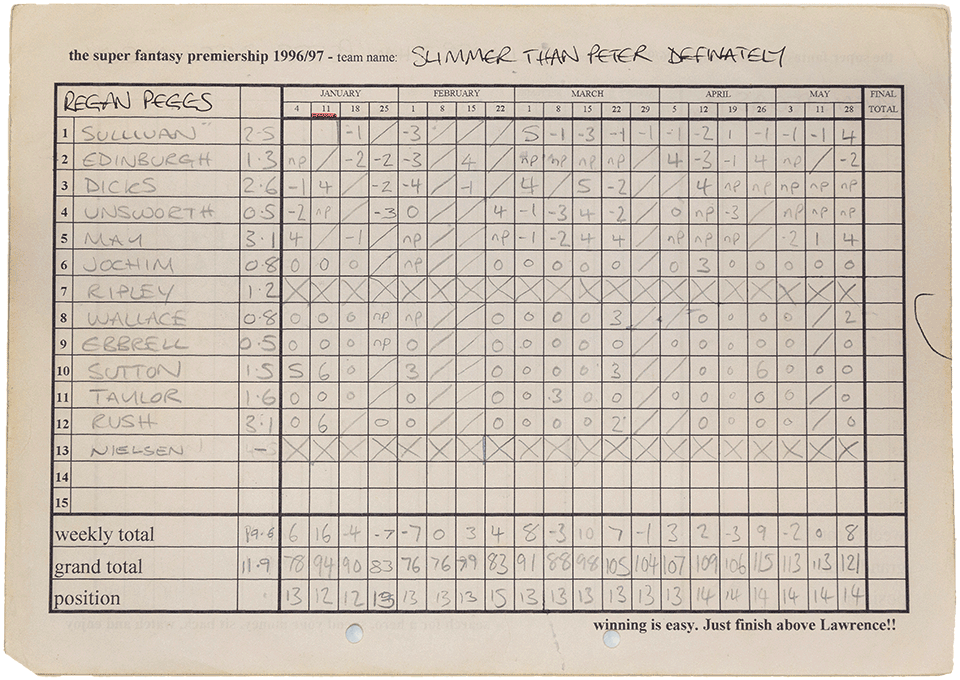 the super fantasy premiership 1996/97 - team name: SLIMMER THAN PETER DEFINATELY
REGAN PEGGS JANUARY FEBRUARY MARCH APRIL MAY FINAL TOTAL
4 11 18 25 1 8 15 22 1 8 15 22 29 5 12 19 26 3 11 28
1 SULLIVAN 2.5 -1 / -3 / / 5 -1 -3 -1 -1 -1 -2 1 -1 -1 -1 4
2 EDINBURGH 1.3 np / -2 -2 -3 / 4 / np np np np / 4 -3 -1 4 np / -2
3 DICKS 2.6 -1 4 / -2 -4 / -1 / 4 / 5 -2 / / 4 np np np np np
4 UNSWORTH 0.5 -2 np / -3 0 / / 4 -1 -3 4 -2 / 0 np -3 / np np np
5 MAY 3.1 4 / -1 / np / / np -1 -2 4 4 / np np np / -2 1 4
6 JOCHIM 0.8 0 0 0 / np / / 0 0 0 0 0 / 0 3 0 0 0 0 0
7 RIPLEY 1.2 X X X X X X X X X X X X X X X X X X X X
8 WALLACE 0.8 0 0 0 np np / / 0 0 0 0 3 / / 0 0 0 0 / 2
9 EBBRELL 0.5 0 0 0 np 0 / / 0 0 0 0 0 / / 0 0 0 0 / 0
10 SUTTON 1.5 5 6 0 / 3 / / 0 0 0 0 3 / / 0 0 6 0 / 0
11 TAYLOR 1.6 0 0 0 / / / / 0 0 3 0 0 / / 0 0 0 0 / 0
12 RUSH 3.1 0 6 / 0 0 / / 0 0 0 0 2 / / 0 0 0 0 / 0
13 NIELSEN X X X X X X X X X X X X X X X X X X X X
14
15
weekly total 6 16 -4 -7 -7 0 3 4 8 -3 10 7 -1 3 2 -3 9 -2 0 8
grand total 11.9 78 94 90 83 76 76 79 83 91 88 98 105 104 107 109 106 115 113 113 121
position 13 12 12 13 13 13 13 15 13 13 13 13 13 13 14 14 14 13 14 14
winning is easy. Just finish above Lawrence!!